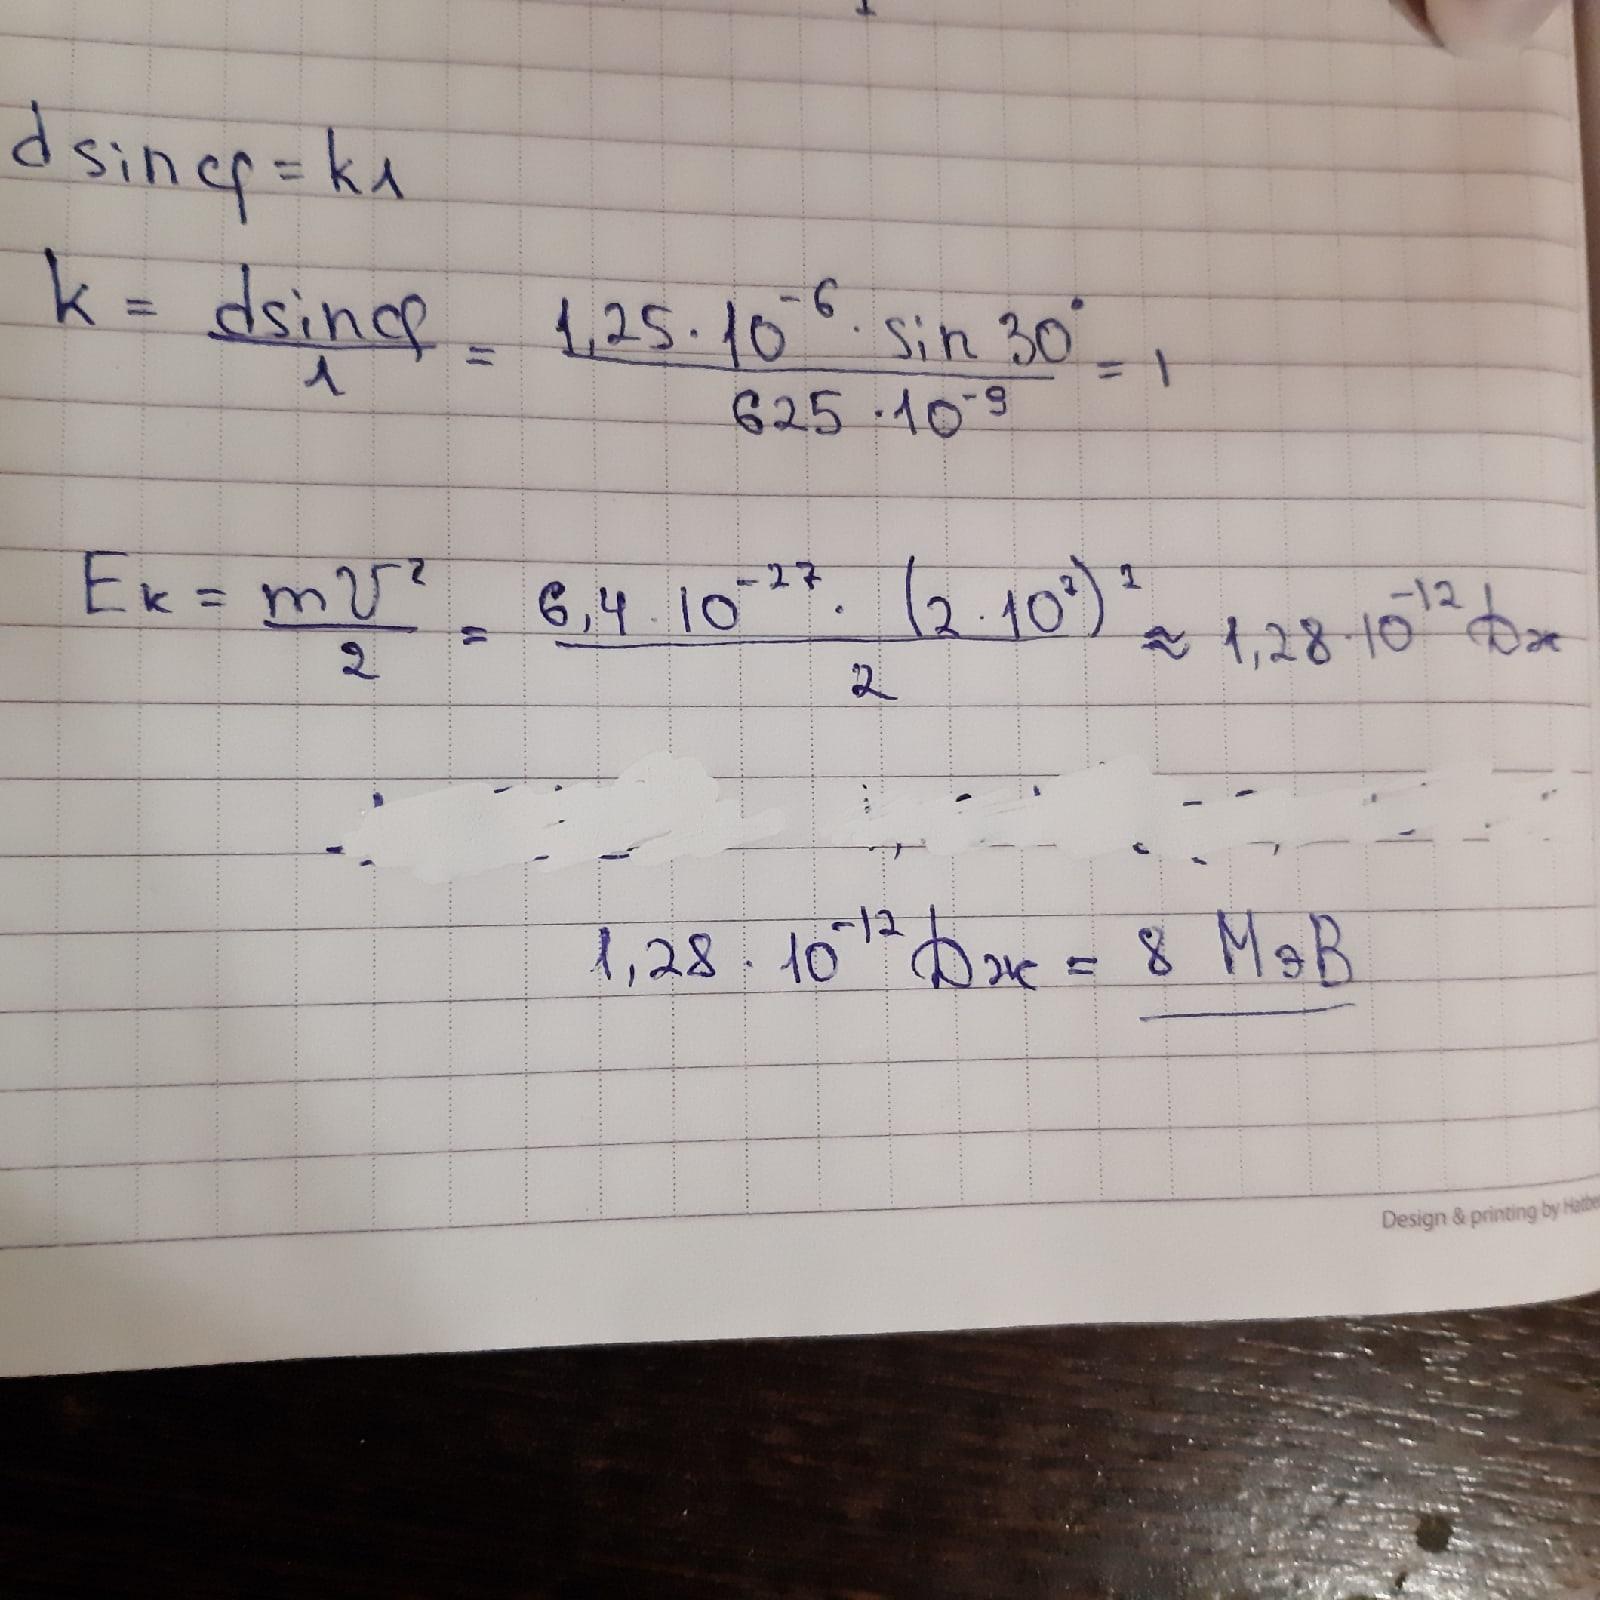 d sin φ = kλ
k = d sin φ / λ = 1,25 · 10⁻⁶ · sin 30° / 625 · 10⁻⁹ = 1
Eк = mV² / 2 = 6,4 · 10⁻²⁷ · (2 · 10⁷)² / 2 ≈ 1,28 · 10⁻¹² Дж
1,28 · 10⁻¹² Дж = 8 МэВ
Design & printing by